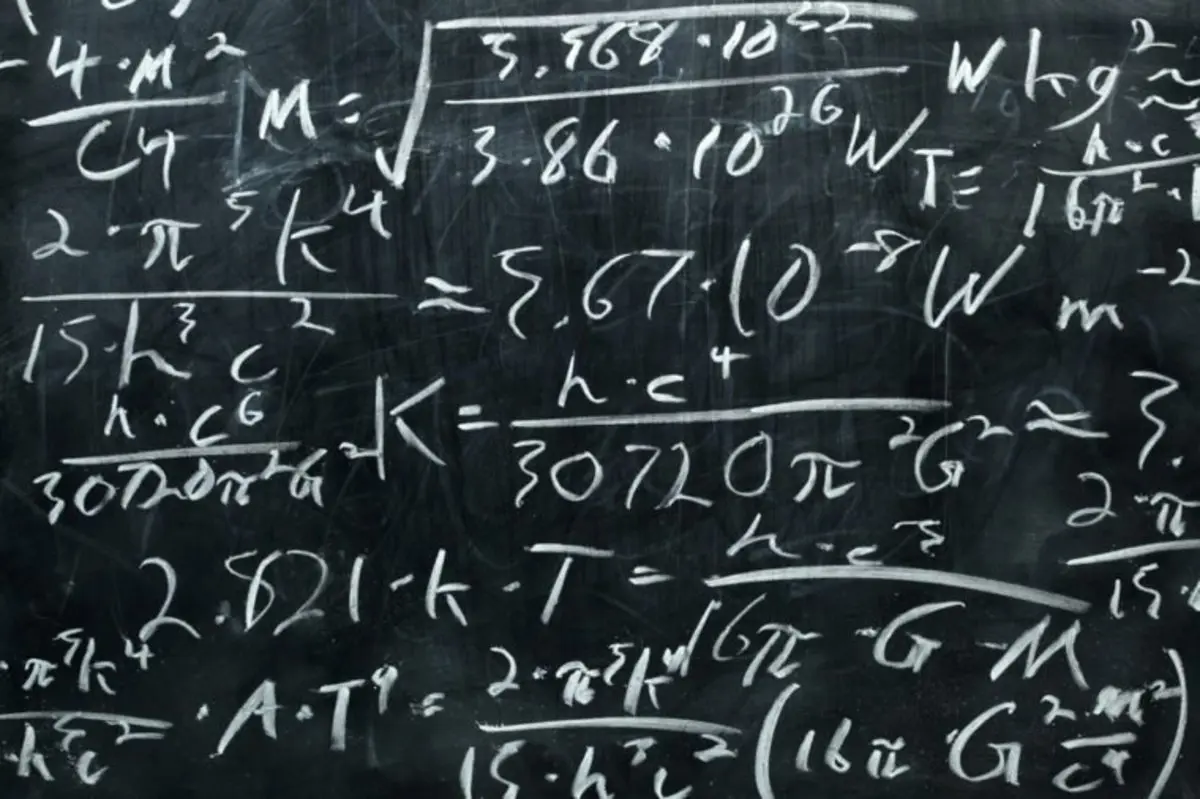 4·M² / C4
M = √(3,568·10³² / 3.86·10²⁶ W) W kg² ≈
T = h·c / 16π²·
2·π⁵k⁴ / 15·h³c² ≈ 5,67·10⁻⁸ W m⁻²
h·c⁶ / 30720π²G² K = h·c⁴ / 30720π²G² ≈ 3.
2.821·k·T = h·c³ / 16π·G·M 2·π / 15·
·π⁵k⁴ / h³c² · A·T⁴ = 2·π⁵k⁴ / 15·h³c² (16π G² m² / c⁴)